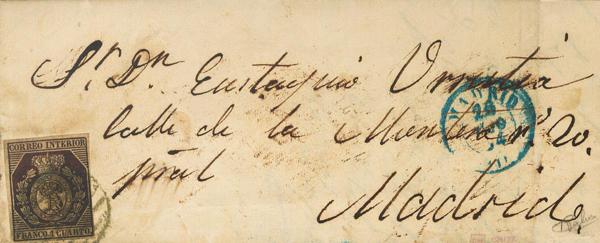 Sr. Dn. Eustaquio Urrutia
Calle de la Montera nº 20.
pral
Madrid
CORREO INTERIOR
FRANCO 1 CUARTO
MADRID